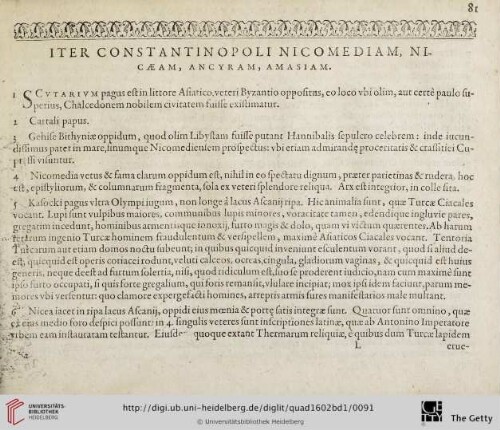 81
ITER CONSTANTINOPOLI NICOMEDIAM, NI-
CÆAM, ANCYRAM, AMASIAM.
1 SCVTARIVM pagus est in littore Asiatico, veteri Byzantio oppositus, eo loco vbi olim, aut certè paulo su-
perius, Chalcedonem nobilem civitatem fuisse existimatur.
2 Cartali papus.
3 Gebise Bithyniæ oppidum, quod olim Libyssam fuisse putant Hannibalis sepulcro celebrem: inde iucun-
dissimus patet in mare, sinumque Nicomediensem prospectus: vbi etiam admirandę proceritatis & crassitiei Cu-
pressi visuntur.
4 Nicomedia vetus & fama clarum oppidum est, nihil in eo spectatu dignum, præter parietinas & rudera, hoc
est, epistyliorum, & columnarum fragmenta, sola ex veteri splendore reliqua. Arx est integrior, in colle sita.
5 Kasocki pagus vltra Olympi iugum, non longe à lacus Ascanij ripa. Hic animalia sunt, quæ Turcæ Ciacales
vocant. Lupi sunt vulpibus maiores, communibus lupis minores, voracitate tamen, edendique ingluvie pares,
gregatim incedunt, hominibus armentisque innoxij, furto magis & dolo, quam vi victum quæritentes. Ab harum
ferarum ingenio Turcæ hominem fraudulentum & versipellem, maximè Asiatici Ciacales vocant. Tentoria
Turcarum aut etiam domos noctu subeunt, in quibus quicquid inveniunt esculentum vorant, quod si aliud de-
est, quicquid est operis coriacei rodunt, veluti calceos, ocreas, cingula, gladiorum vaginas, & quicquid est huius
generis, neque deest ad furtum solertia, nisi, quod ridiculum est, suo se proderent iudicio, nam cum maximè sunt
ipso furto occupati, si quis forte gregalium, qui foris remansit, vlulare incipiat; mox ipsi idem faciunt, parum me-
mores vbi versentur: quo clamore expergefacti homines, arreptis armis fures manifestarios male multant.
6 Nicea iacet in ripa lacus Ascanij, oppidi eius mœnia & portę satis integræ sunt. Quatuor sunt omnino, quæ
ex eius medio foro despici possunt: in 4. singulis veteres sunt inscriptiones latinæ, quæ ab Antonino Imperatore
vrbem eam instauratam testantur. Eiusde quoque extant Thermarum reliquiæ, è quibus dum Turcæ lapidem
L erue-
UNIVERSITÄTS-
BIBLIOTHEK
HEIDELBERG
http://digi.ub.uni-heidelberg.de/diglit/quad1602bd1/0091
© Universitätsbibliothek Heidelberg
The Getty